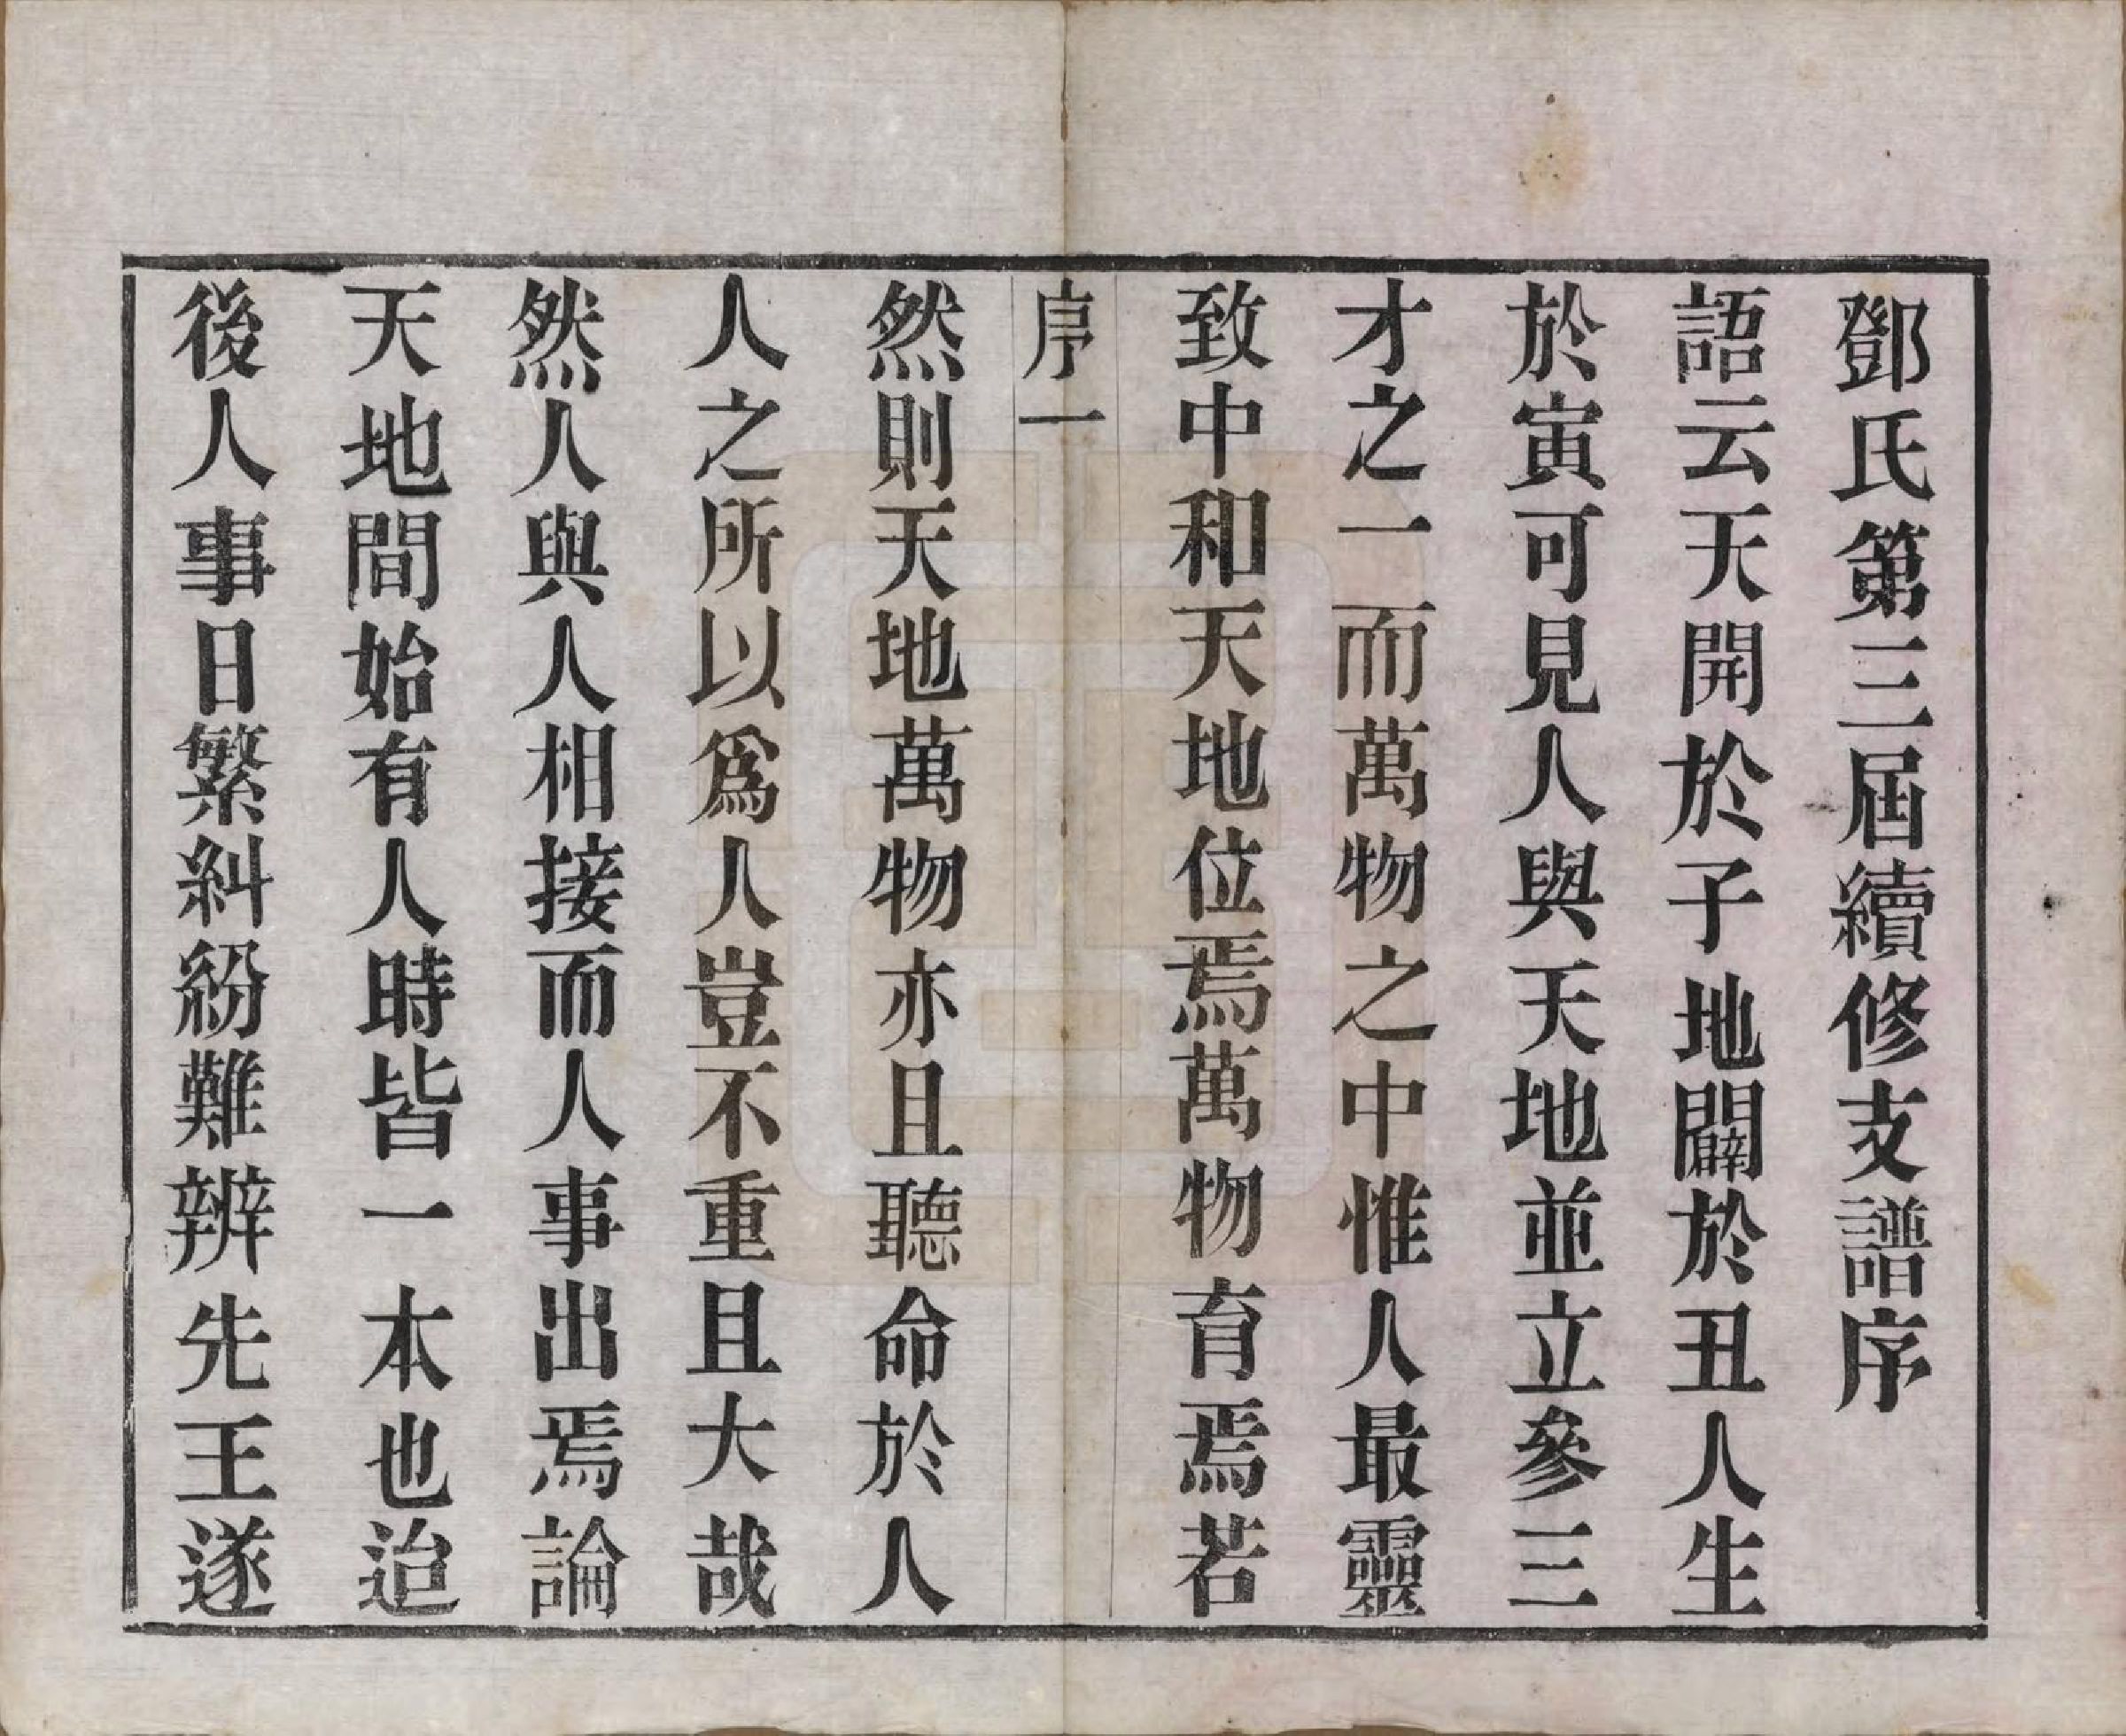 鄧氏第三屆續修支譜序
語云天開於子地闢於丑人生
於寅可見人與天地並立參三
才之一而萬物之中惟人最靈
致中和天地位焉萬物育焉若
序一
然則天地萬物亦且聽命於人
人之所以爲人豈不重且大哉
然人與人相接而人事出焉論
天地間始有人時皆一本也迨
後人事日繁糾紛難辨先王遂